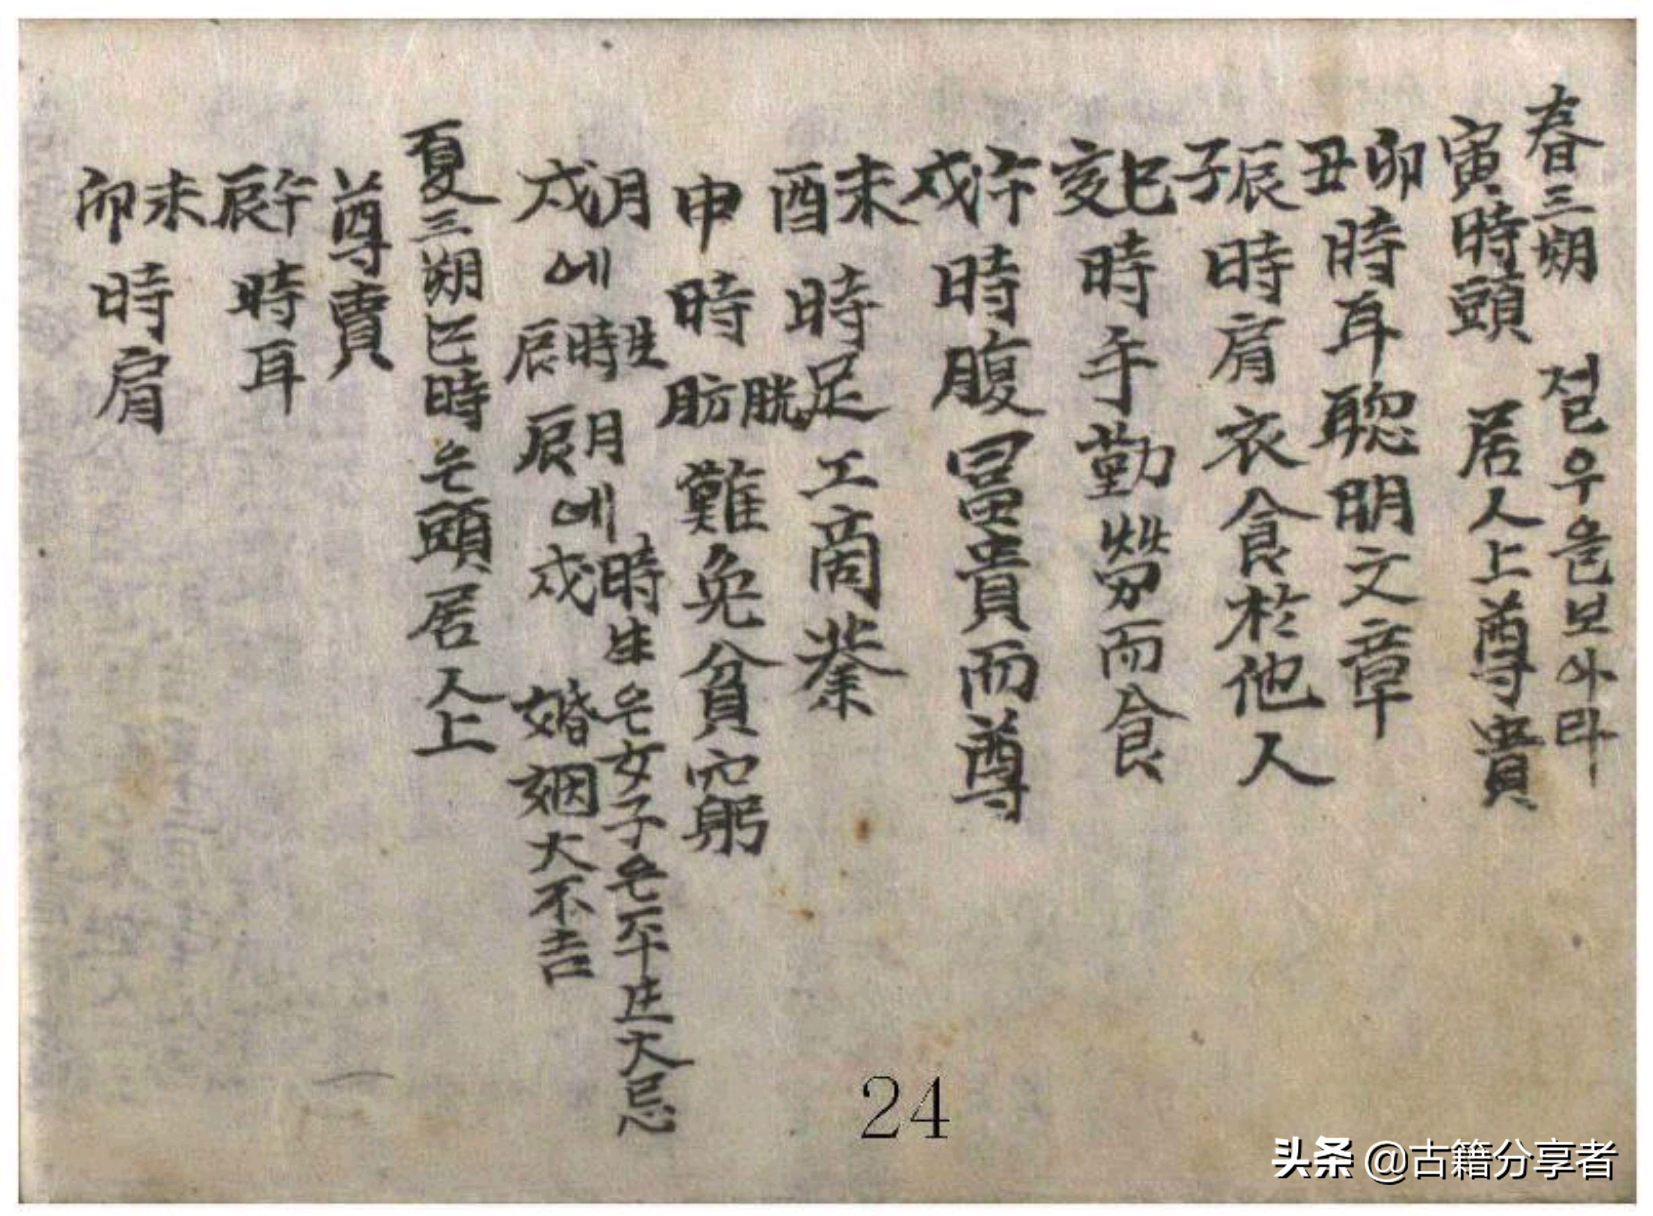 春三朔 절우을보아라
寅時頭 居人上尊貴
卯丑時耳聰明文章
辰子時肩衣食於他人
巳亥時手勤勞而食
午戌時腹冨貴而尊
未酉時足工商業
申時膀胱難免貧窮
月에時生月에時生은女子은平生大忌
戌辰辰戌婚姻大不吉
夏三朔巳時은頭居人上
尊貴
午辰時耳
未卯時肩
24
头条 @古籍分享者